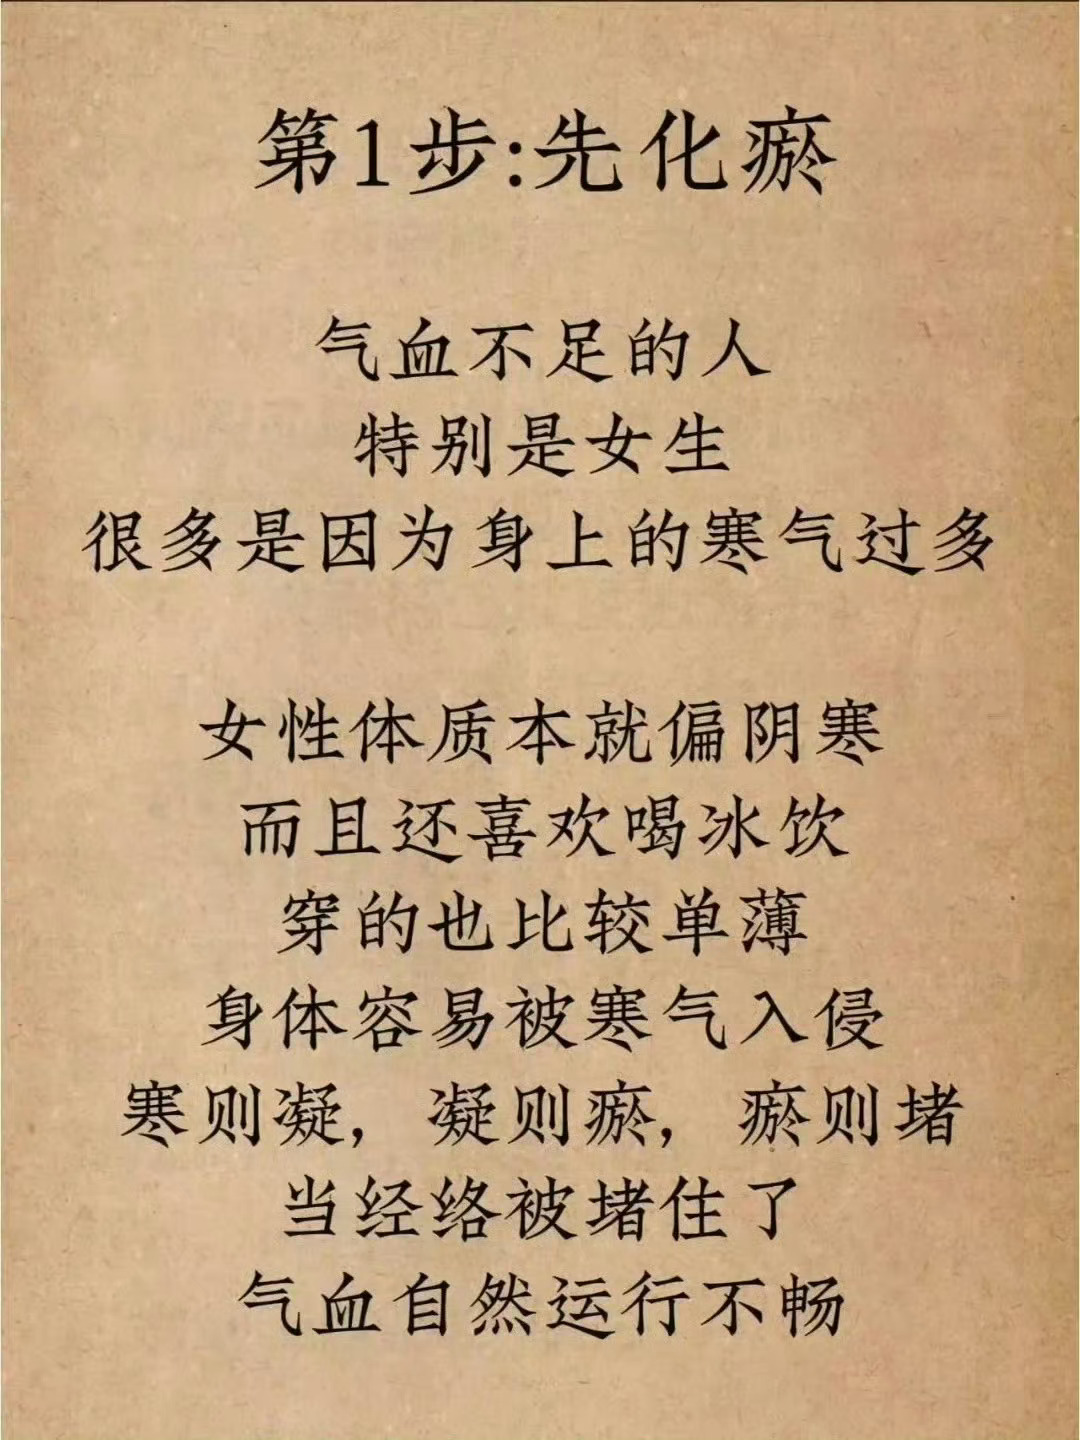 第1步:先化瘀
气血不足的人
特别是女生
很多是因为身上的寒气过多
女性体质本就偏阴寒
而且还喜欢喝冰饮
穿的也比较单薄
身体容易被寒气入侵
寒则凝，凝则瘀，瘀则堵
当经络被堵住了
气血自然运行不畅